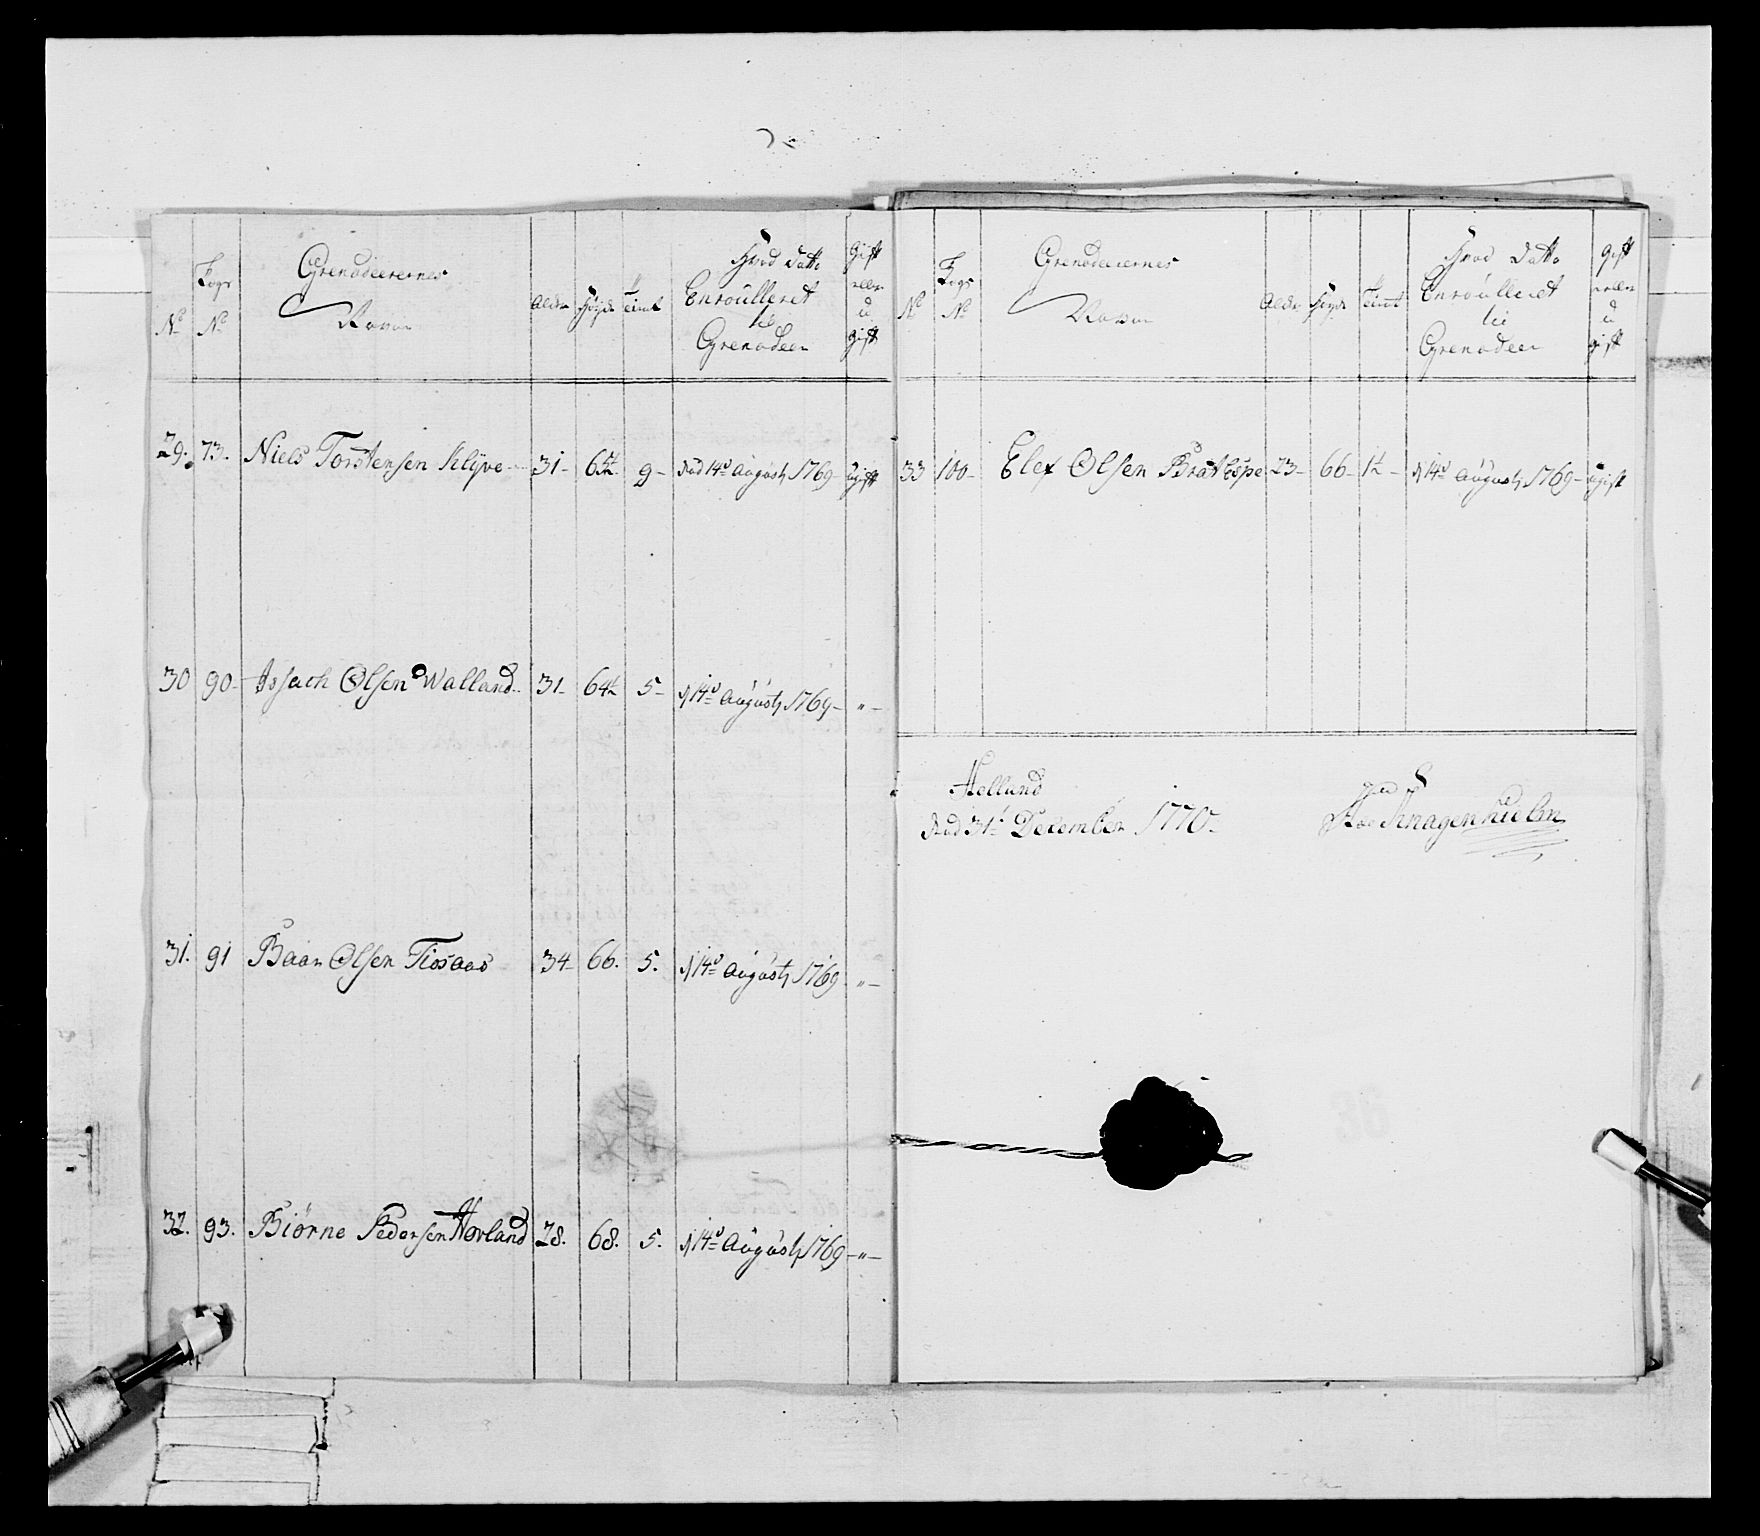 No
Legs No
Grenadeerernes Navne
Alder
Høyde
Tiint
Hvad Datto Enroulleret til Grenadeer
Gift eller u gift
29. 73. Niels Torstensen Klyve 31 65½ 9 Død 14de Augusty 1769 ugift
30 90 Issach Olsen Walland 31 64½ 5 d 14de Augusty 1769 "
31. 91 Baar Olsen Tiosaas 34 66. 5. d 14de Augusty 1769 "
32. 93. Biörne Pedersen Hovland 28. 68. 5. d 14de Augusty 1769 "
No
Legs No
Grenadeerernes Navne
Alder
Høyde
Tiint
Hvad Datto Enroulleret til Grenadeer
Gift eller u gift
33 100 Elef Olsen Bratespe 23 66 1½ d 14de Augusty 1769 ugift
Hellund
31te December 1770
Knagenhielm